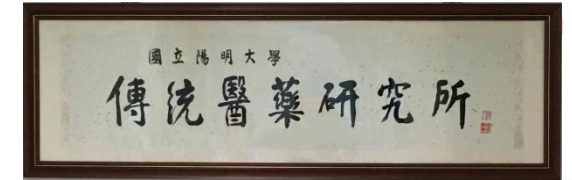 國立陽明大學
傳統醫藥研究所